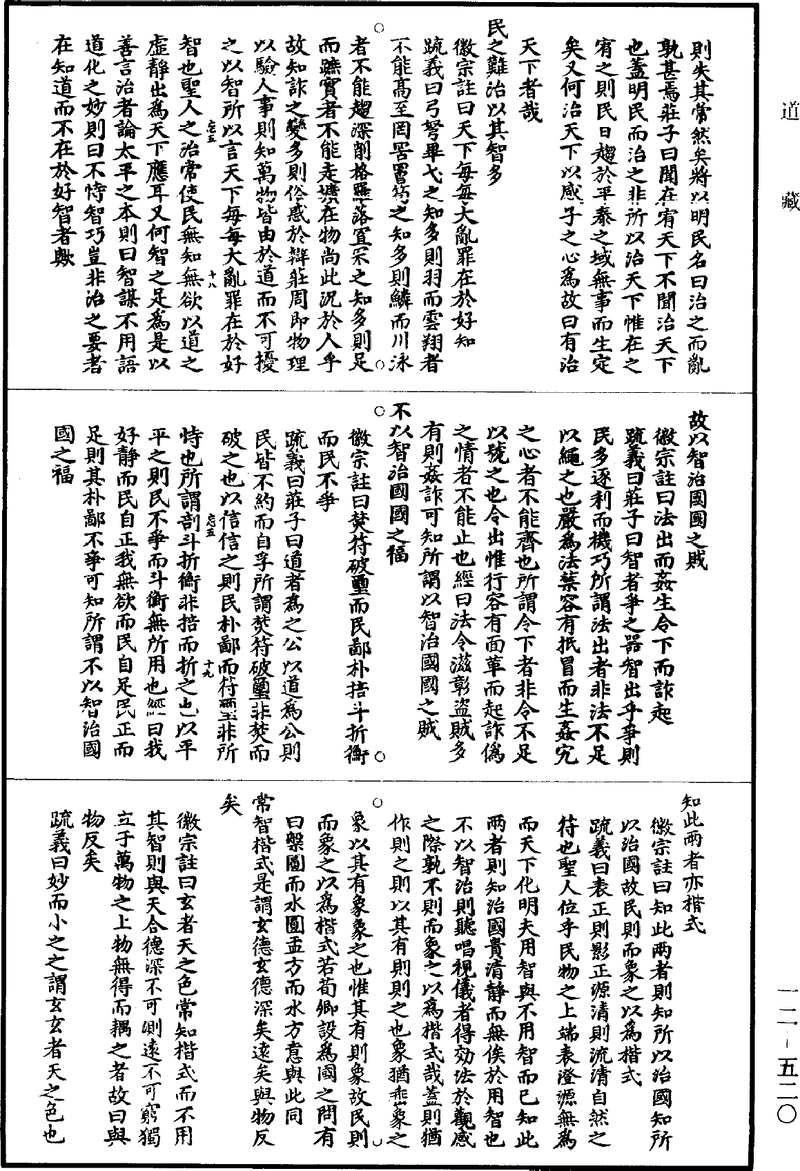 道藏
則失其常然矣將以明民名曰治之而亂
孰甚焉莊子曰聞在宥天下不聞治天下
也蓋明民而治之非所以治天下惟在之
宥之則民日趨於平泰之域無事而生定
矣又何治天下以惑子之心為故曰有治
天下者哉
民之難治以其智多
徽宗註曰天下每每大亂罪在於好知
疏義曰弓弩畢弋之知多則羽而雲翔者
不能高至罔罟罾笱之知多則鱗而川泳
者不能趨深削格羅落罝罘之知多則足
而蹠實者不能走壙在物尚此況於人乎
故知詐之變多則俗惑於辯莊周即物理
以驗人事則知萬物皆由於道而不可擾
之以智所以言天下每每大亂罪在於好
忘五 十八
智也聖人之治常使民無知無欲以道之
虛靜出為天下應耳又何智之足為是以
善言治者論太平之本則曰智謀不用語
道化之妙則曰不恃智巧豈非治之要者
在知道而不在於好智者歟
故以智治國國之賊
徽宗註曰法出而姦生令下而詐起
疏義曰莊子曰智者爭之器智出乎爭則
民多逐利而機巧所謂法出者非法不足
以繩之也嚴為法禁容有抵冒而生姦宄
之心者不能齊也所謂令下者非令不足
以號之也令出惟行容有面革而起詐偽
之情者不能止也經曰法令滋彰盜賊多
有則姦詐可知所謂以智治國國之賊
不以智治國國之福
徽宗註曰焚符破璽而民鄙朴掊斗折衡
而民不爭
疏義曰莊子曰道者為之公以道為公則
民皆不約而自孚所謂焚符破璽非焚而
破之也以信信之則民朴鄙而符璽非所
忘五 十九
恃也所謂剖斗折衡非掊而折之也以平
平之則民不爭而斗衡無所用也經曰我
好靜而民自正我無欲而民自足民正而
足則其朴鄙不爭可知所謂不以智治國
國之福
知此兩者亦楷式
徽宗註曰知此兩者則知所以治國知所
以治國故民則而象之以為楷式
疏義曰表正則影正源清則流清自然之
符也聖人位乎民物之上端表澄源無為
而天下化明夫用智與不用智而已知此
兩者則知治國貴清靜而無俟於用智也
不以智治則聽唱視儀者得効法於觀感
之際孰不則而象之以為楷式哉蓋則猶
作則之則以其有則則之也象猶垂象之
象以其有象象之也惟其有則象故民則
而象之以為楷式若荀卿設為國之問有
曰槃圓而水圓盂方而水方意與此同
常智楷式是謂玄德玄德深矣遠矣與物反
矣
徽宗註曰玄者天之色常知楷式而不用
其智則與天合德深不可測遠不可窮獨
立于萬物之上物無得而耦之者故曰與
物反矣
疏義曰妙而小之之謂玄玄者天之色也
一二-五二〇